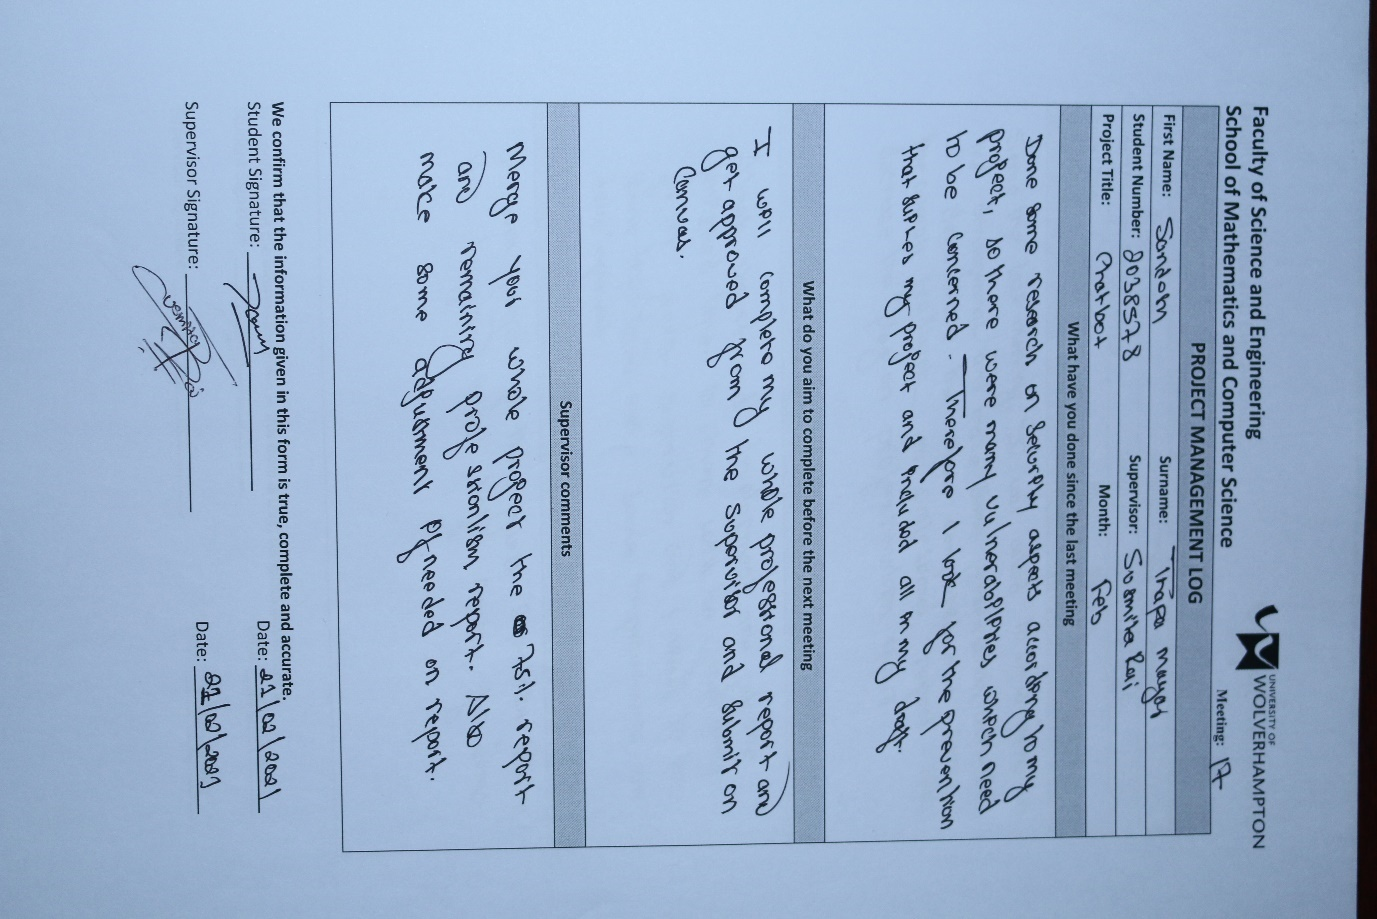 Faculty of Science and Engineering
School of Mathematics and Computer Science
UNIVERSITY OF
WOLVERHAMPTON
Meeting: 17
PROJECT MANAGEMENT LOG
First Name: Sandesh Surname: Thapa Magar
Student Number: 2038578 Supervisor: Susmita Rai
Project Title: Chatbot Month: Feb
What have you done since the last meeting
Done some research on security aspects according to my
project, so there were many vulnerabilities which need
to be concerned. Therefore I look for the prevention
that suites my project and included all on my draft.
What do you aim to complete before the next meeting
I will complete my whole professional report and
get approved from the supervisor and submit on
Canvas.
Supervisor comments
Merge your whole project the 75% report
and remaining professionlism report. Also
make some adjustment if needed on report.
We confirm that the information given in this form is true, complete and accurate.
Student Signature: Date: 21/02/2021
Supervisor Signature: Date: 21/02/2021